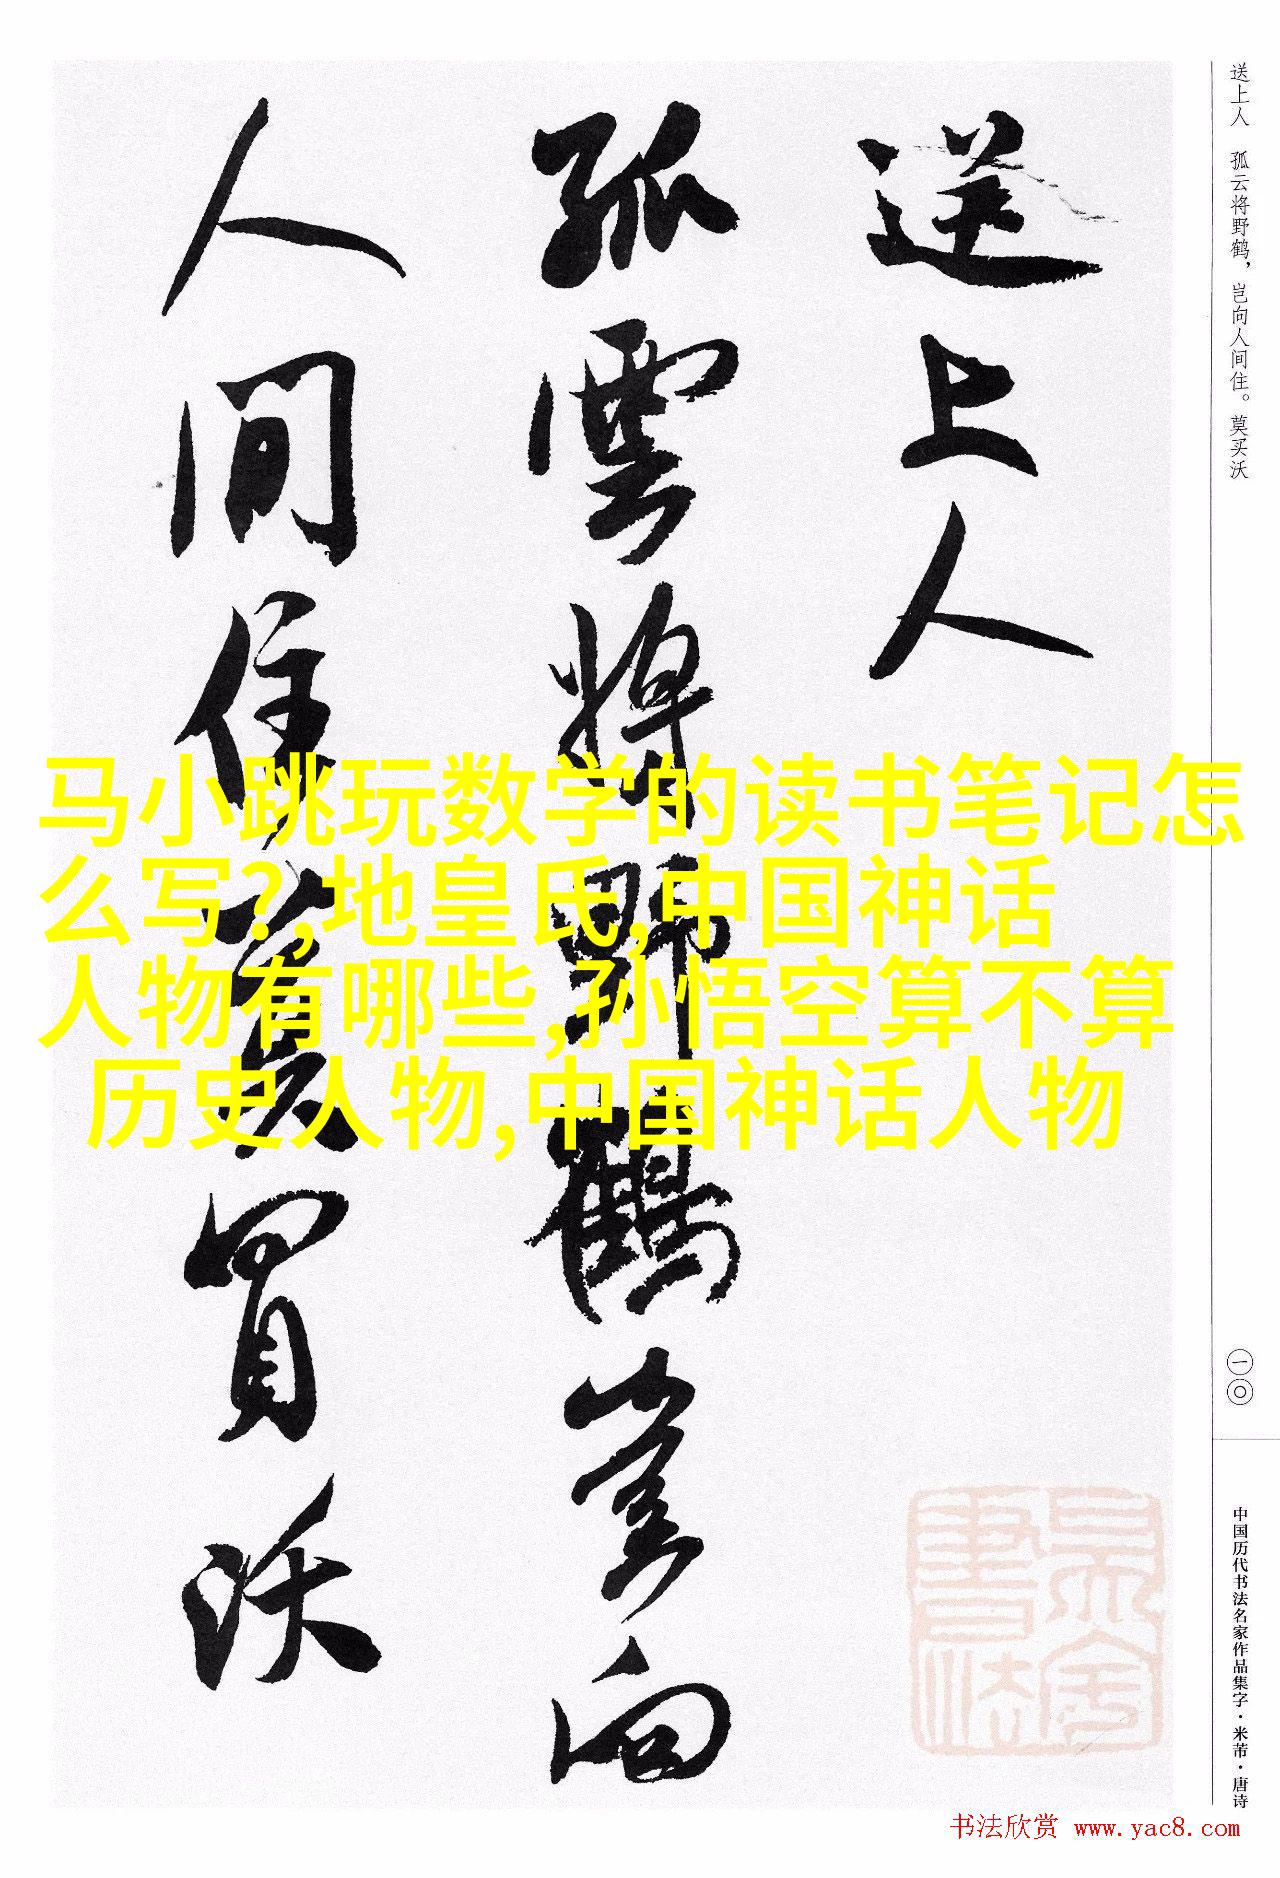 送上人 孤云将野鹤，岂向人间住。莫买沃
送上人
孤雲將野鶴豈向
人间住莫買沃
马小跳玩数学的读书笔记怎
么写?,地皇氏,中国神话
人物有哪些,孙悟空算不算
历史人物,中国神话人物
一〇
中国历代书法名家作品集字·米芾·唐诗
书法欣赏 www.yac8.com